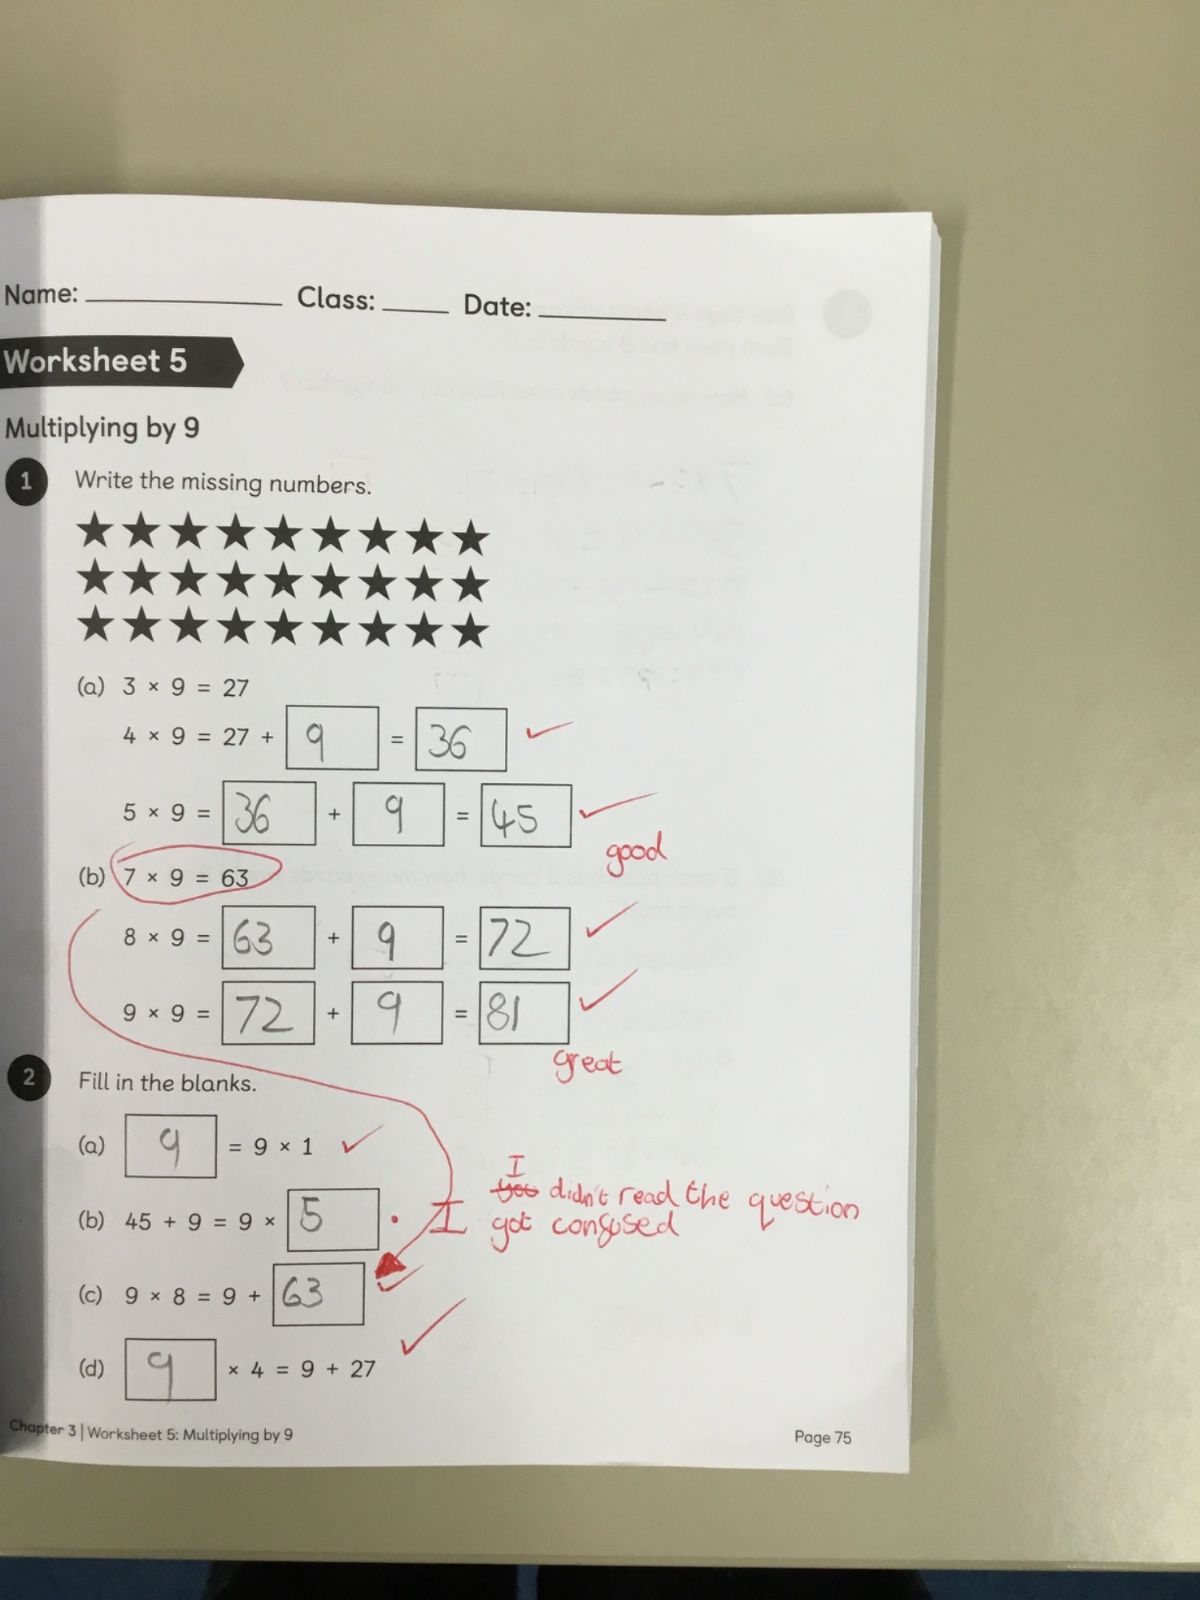 Name: Class: Date:
Worksheet 5
Multiplying by 9
1 Write the missing numbers.
(a) 3 × 9 = 27
4 × 9 = 27 + 9 = 36
5 × 9 = 36 + 9 = 45
good
(b) 7 × 9 = 63
8 × 9 = 63 + 9 = 72
9 × 9 = 72 + 9 = 81
great
2 Fill in the blanks.
(a) 9 = 9 × 1
I
you didn't read the question
(b) 45 + 9 = 9 × 5 . I got confused
(c) 9 × 8 = 9 + 63
(d) 9 × 4 = 9 + 27
Chapter 3 | Worksheet 5: Multiplying by 9 Page 75